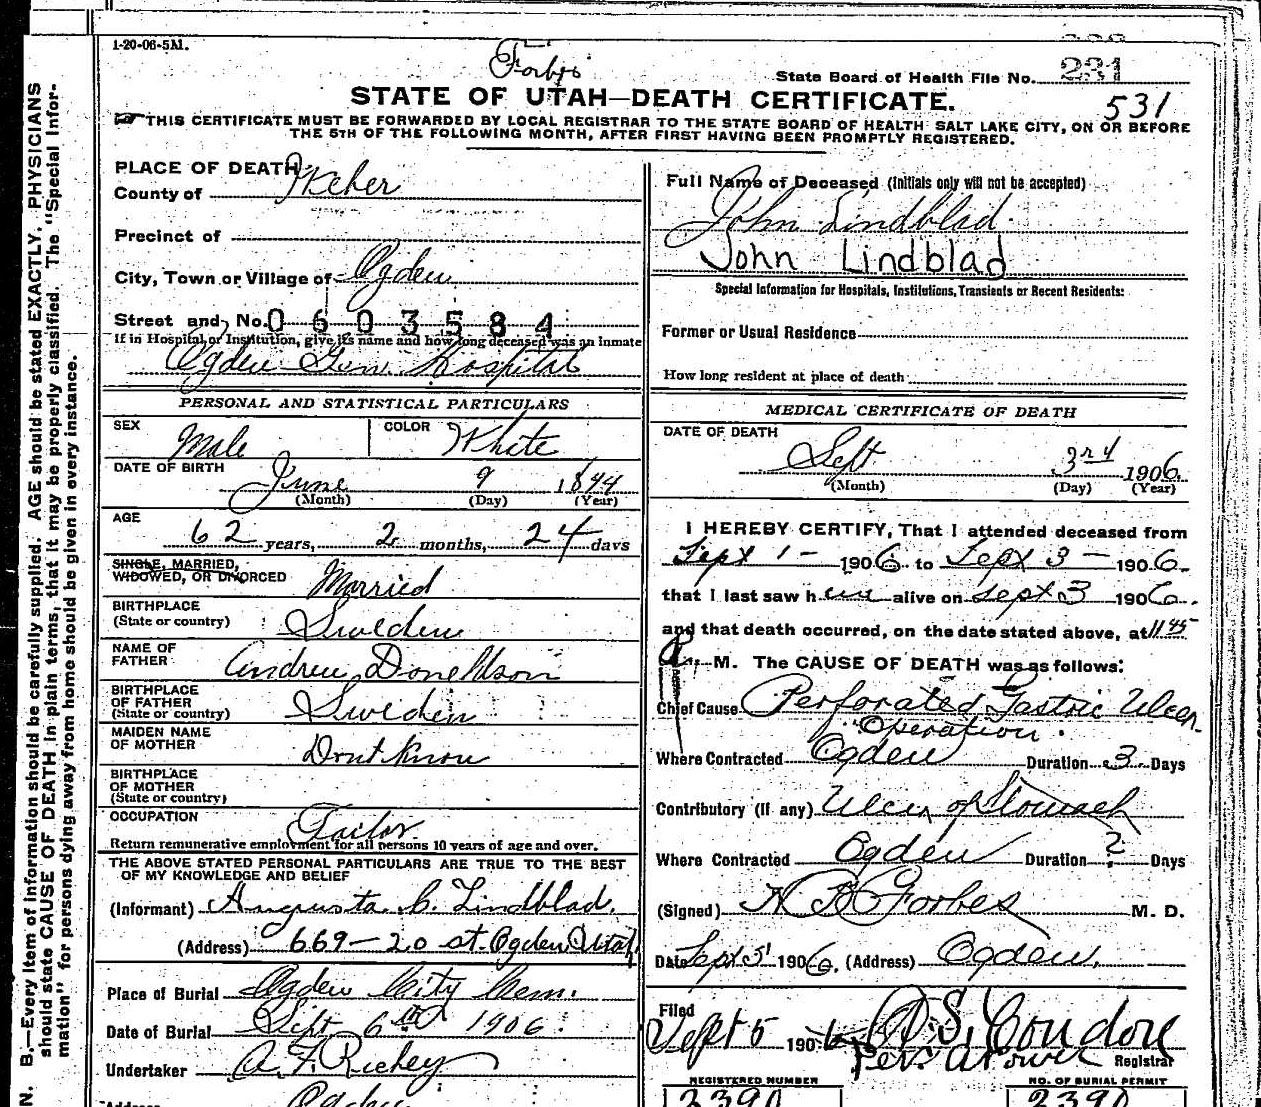 1-20-06-5M.
Forbes
State Board of Health File No. 231
STATE OF UTAH—DEATH CERTIFICATE.
531
THIS CERTIFICATE MUST BE FORWARDED BY LOCAL REGISTRAR TO THE STATE BOARD OF HEALTH SALT LAKE CITY, ON OR BEFORE
THE 5TH OF THE FOLLOWING MONTH, AFTER FIRST HAVING BEEN PROMPTLY REGISTERED.
N. B.—Every item of information should be carefully supplied. AGE should be stated EXACTLY. PHYSICIANS
should state CAUSE OF DEATH in plain terms, that it may be properly classified. The "Special Infor-
mation" for persons dying away from home should be given in every instance.
PLACE OF DEATH
County of Weber
Precinct of
City, Town or Village of Ogden
Street and No. 0603584
If in Hospital or Institution, give its name and how long deceased was an inmate
Ogden Gen. Hospital
PERSONAL AND STATISTICAL PARTICULARS
SEX Male COLOR White
DATE OF BIRTH
June 9 1844
(Month) (Day) (Year)
AGE
62 years, 2 months, 24 days
SINGLE, MARRIED,
WIDOWED, OR DIVORCED Married
BIRTHPLACE
(State or country) Sweden
NAME OF
FATHER Andrew
BIRTHPLACE
OF FATHER
(State or country) Sweden
MAIDEN NAME
OF MOTHER Dont Know
BIRTHPLACE
OF MOTHER
(State or country)
OCCUPATION
Tailor
Return remunerative employment for all persons 10 years of age and over.
THE ABOVE STATED PERSONAL PARTICULARS ARE TRUE TO THE BEST
OF MY KNOWLEDGE AND BELIEF
(Informant) Augusta C. Lindblad.
(Address) 669-20 st. Ogden Utah
Place of Burial Ogden City Cem.
Date of Burial Sept 6th 1906.
Undertaker A. F. Richey
Address Ogden
Full Name of Deceased (Initials only will not be accepted)
John Lindblad
John Lindblad
Special Information for Hospitals, Institutions, Transients or Recent Residents:
Former or Usual Residence
How long resident at place of death
MEDICAL CERTIFICATE OF DEATH
DATE OF DEATH
Sept 3rd 1906
(Month) (Day) (Year)
I HEREBY CERTIFY, That I attended deceased from
Sept 1- 1906 to Sept 3- 1906.
that I last saw him alive on Sept 3 1906.
and that death occurred, on the date stated above, at 11 45
a. M. The CAUSE OF DEATH was as follows:
Chief Cause Perforated Gastric Ulcer
"Operation.
Where Contracted Ogden Duration 3 Days
Contributory (If any) Ulcer of Stomach
Where Contracted Ogden Duration ? Days
(Signed) Forbes M. D.
Date Sept 5 1906. (Address) Ogden.
Filed
Sept 5 1906 A. S. Condon
Registrar
REGISTERED NUMBER NO. OF BURIAL PERMIT
2390 2390